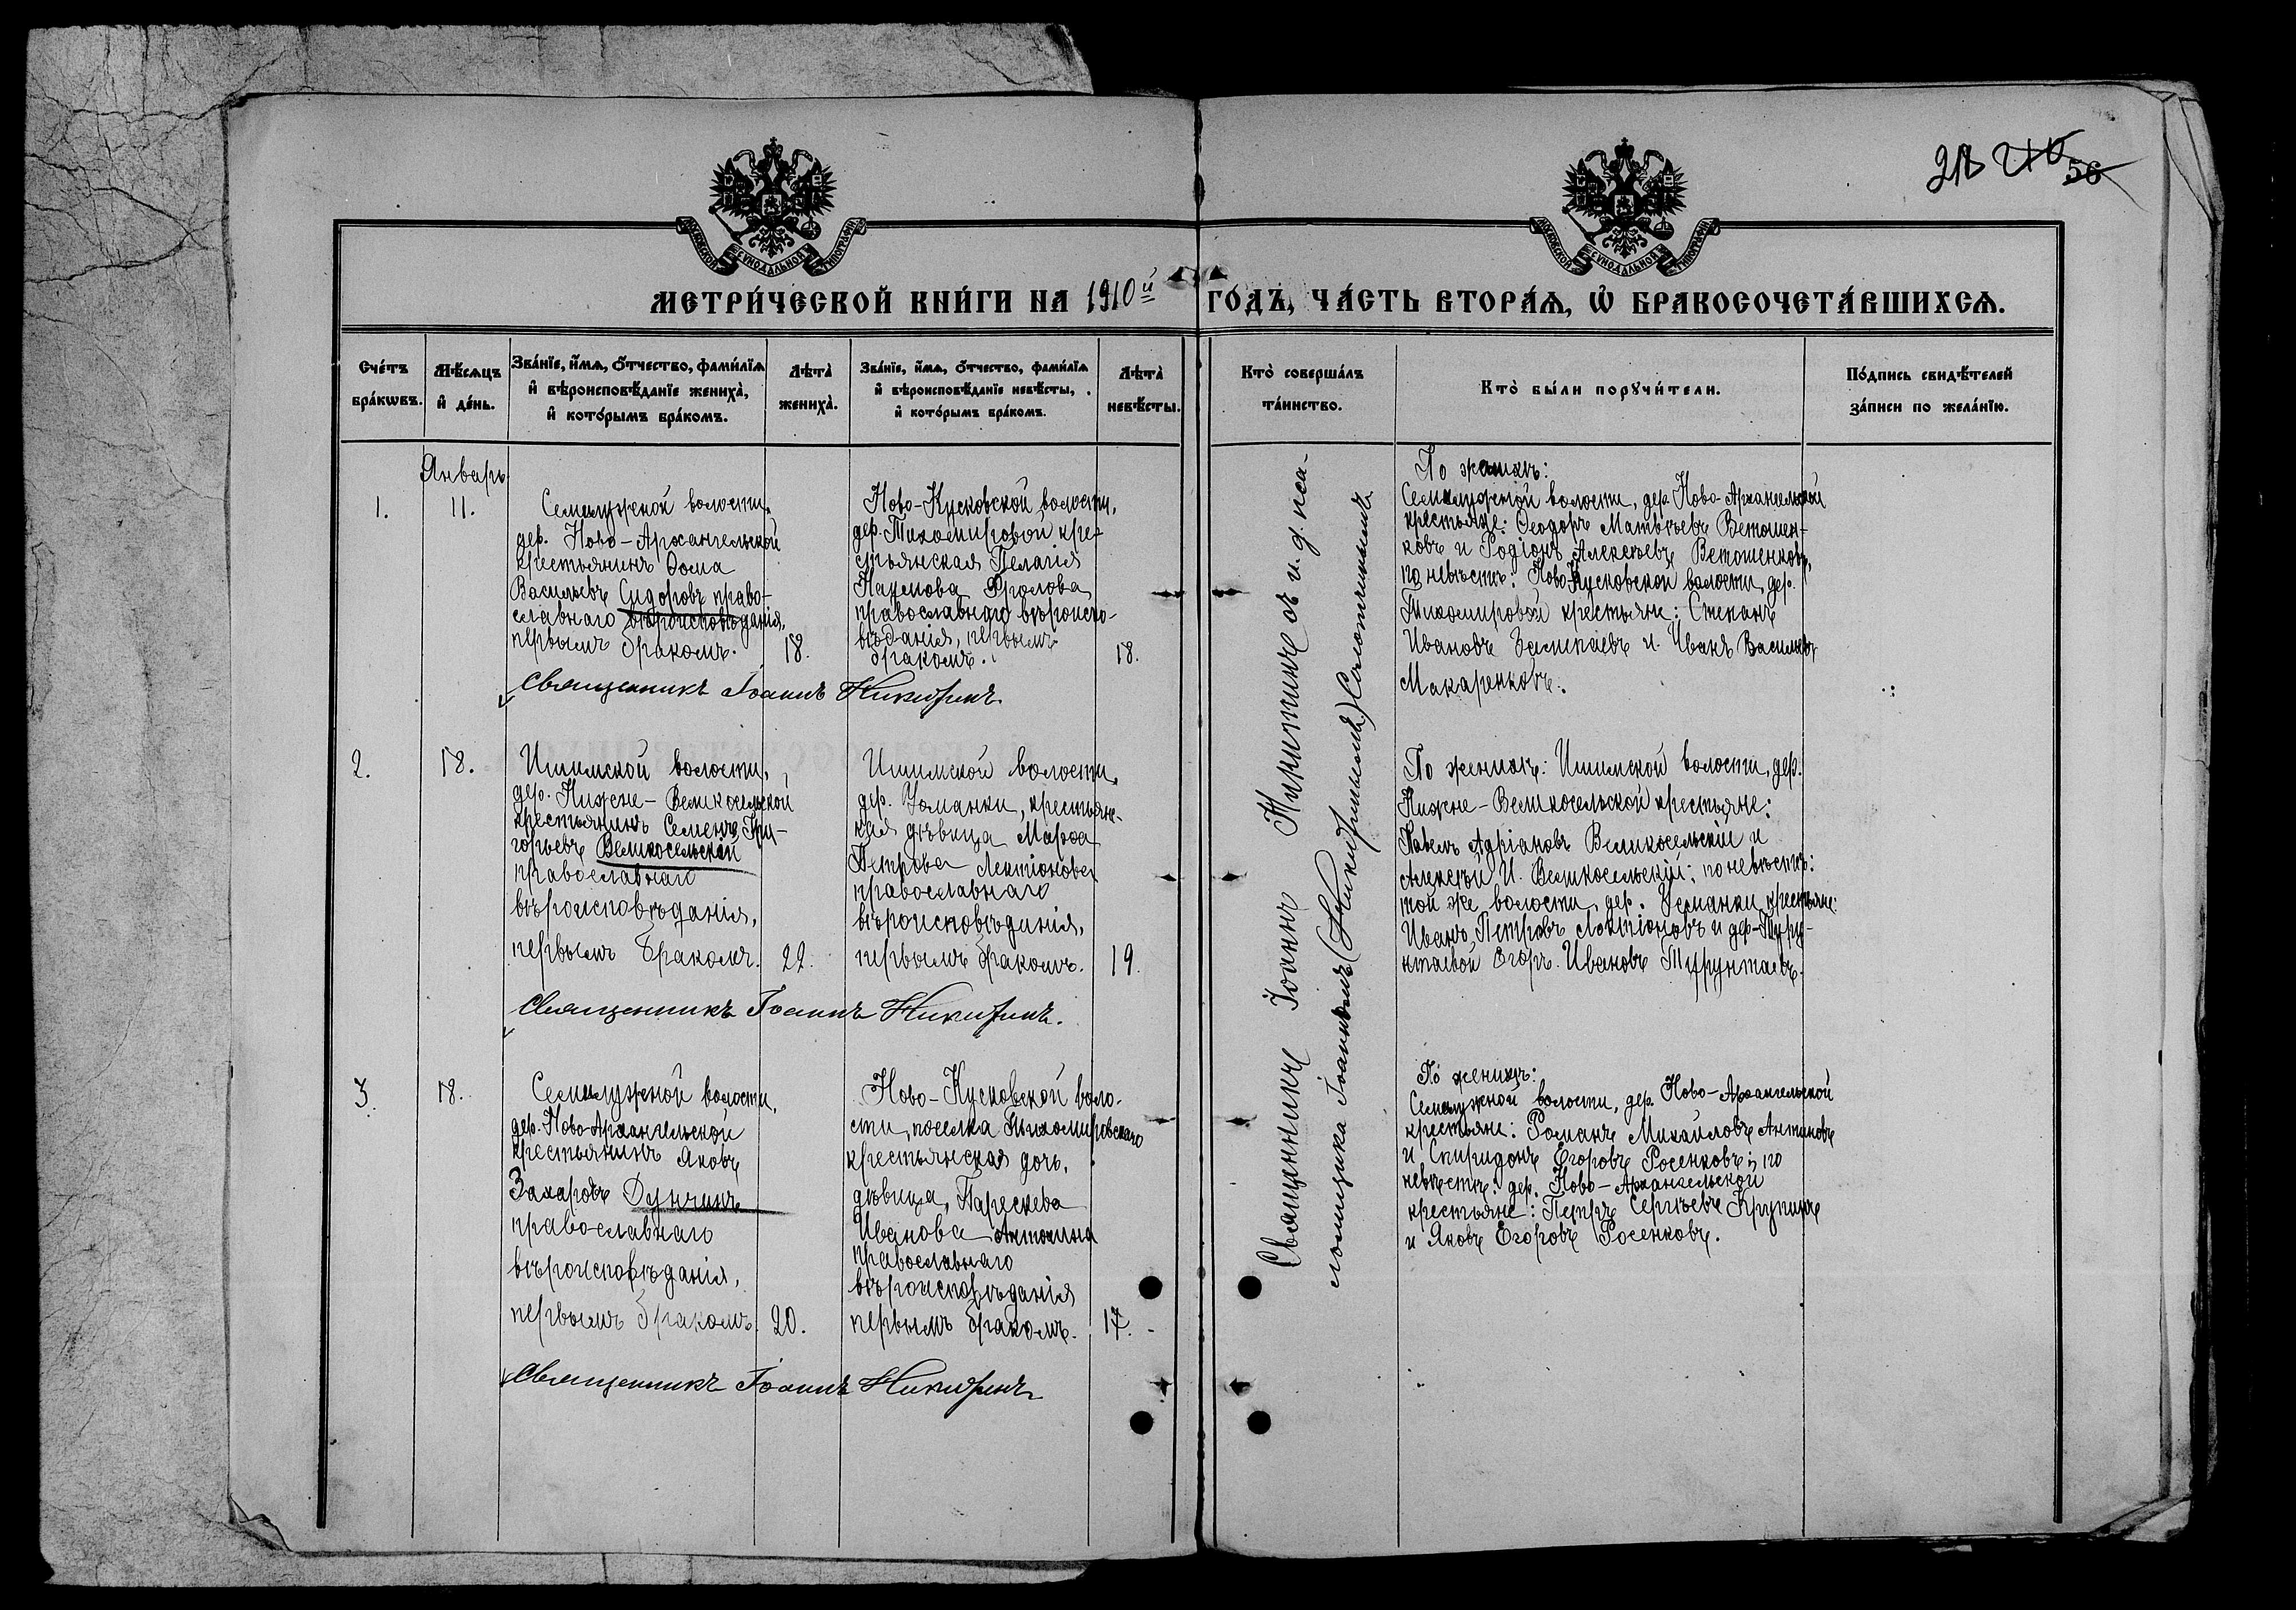 212 210 56
МОСКОВСКОЙ СѴНОДАЛЬНОЙ ТИПОГРАФІИ
МОСКОВСКОЙ СѴНОДАЛЬНОЙ ТИПОГРАФІИ
МЕТРИ́ЧЕСКОЙ КНИ́ГИ НА 1910й ГО́ДЪ, ЧА́СТЬ ВТОРА́Ѧ, Ѡ҆ БРАКОСОЧЕТА́ВШИХСѦ.
Сче́тъ
бра́кѡвъ.
Мѣ́сѧцъ
и҆ де́нь.
Зва́нїе, и҆́мѧ, ѻ҆́тчество, фами́лїѧ
и҆ вѣроисповѣ́данїе жениха̀,
и҆ кото́рымъ бра́комъ.
Лѣта̀
жениха̀.
Зва́нїе, и҆́мѧ, ѻ҆́тчество, фами́лїѧ
и҆ вѣроисповѣ́данїе невѣ́сты,
и҆ кото́рымъ бра́комъ.
Лѣта̀
невѣ́сты.
Кто̀ соверша́лъ
та́инство.
Кто̀ бы́ли порꙋчи́тели.
По́дпись свидѣ́телей
за́писи по жела́нїю.
Январь
1.
11.
Семилужной волости,
дер. Ново-Архангельской
крестьянинъ Ѳома
Васильевъ Сидоровъ право-
славнаго вѣроисповѣданія,
первымъ бракомъ.
18.
Ново-Кусковской волости,
дер. Тихомировой кре-
стьянская Пелагія
Наумова Фролова
православнаго вѣроиспо-
вѣданія, первымъ
бракомъ.
18.
Священникъ Іоаннъ Никитинъ.
Священникъ Іоаннъ Никитинъ съ и. д. пса-
ломщика Іоанномъ (Никифоровымъ)
По женихѣ:
Семилужной волости, дер. Ново-Архангельской
крестьяне: Ѳеодоръ Матвѣевъ Ветошен-
ковъ и Родіонъ Алексѣевъ Ветошенковъ,
по невѣстѣ: Ново-Кусковской волости, дер.
Тихомировой крестьяне: Степанъ
Ивановъ и Иванъ Васильевъ
Макаренковъ.
2.
18.
Ишимской волости,
дер. Нижне-Великосельской
крестьянинъ Семенъ Гри-
горьевъ Великосельскій
православнаго
вѣроисповѣданія,
первымъ бракомъ.
22.
Ишимской волости,
дер. Усманки, крестьянс-
кая дѣвица Марѳа
Петрова Локтіонова
православнаго
вѣроисповѣданія,
первымъ бракомъ.
19.
Священникъ Іоаннъ Никитинъ.
По женихѣ: Ишимской волости, дер.
Нижне-Великосельской крестьяне:
Павелъ Адріановъ Великосельскій и
Алексѣй И. Великосельскій; по невѣстѣ:
той же волости, дер. Усманки крестьяне:
Иванъ Петровъ Локтіоновъ и дер. Туру-
нтаевой Егоръ Ивановъ Турунтаевъ.
3.
18.
Семилужной волости,
дер. Ново-Архангельской
крестьянинъ Яковъ
Захаровъ Дунчикъ
православнаго
вѣроисповѣданія,
первымъ бракомъ.
20.
Ново-Кусковской воло-
сти, поселка Тихомировскаго
крестьянская дочь,
дѣвица, Параскева
Иванова Антонина
православнаго
вѣроисповѣданія
первымъ бракомъ.
17.
Священникъ Іоаннъ Никитинъ
По женихѣ:
Семилужной волости, дер. Ново-Архангельской
крестьяне: Романъ Михайловъ Антиповъ
и Спиридонъ Егоровъ Росенковъ; по
невѣстѣ: дер. Ново-Архангельской
крестьяне: Петръ Сергѣевъ Крупинъ
и Яковъ Егоровъ Росенковъ.